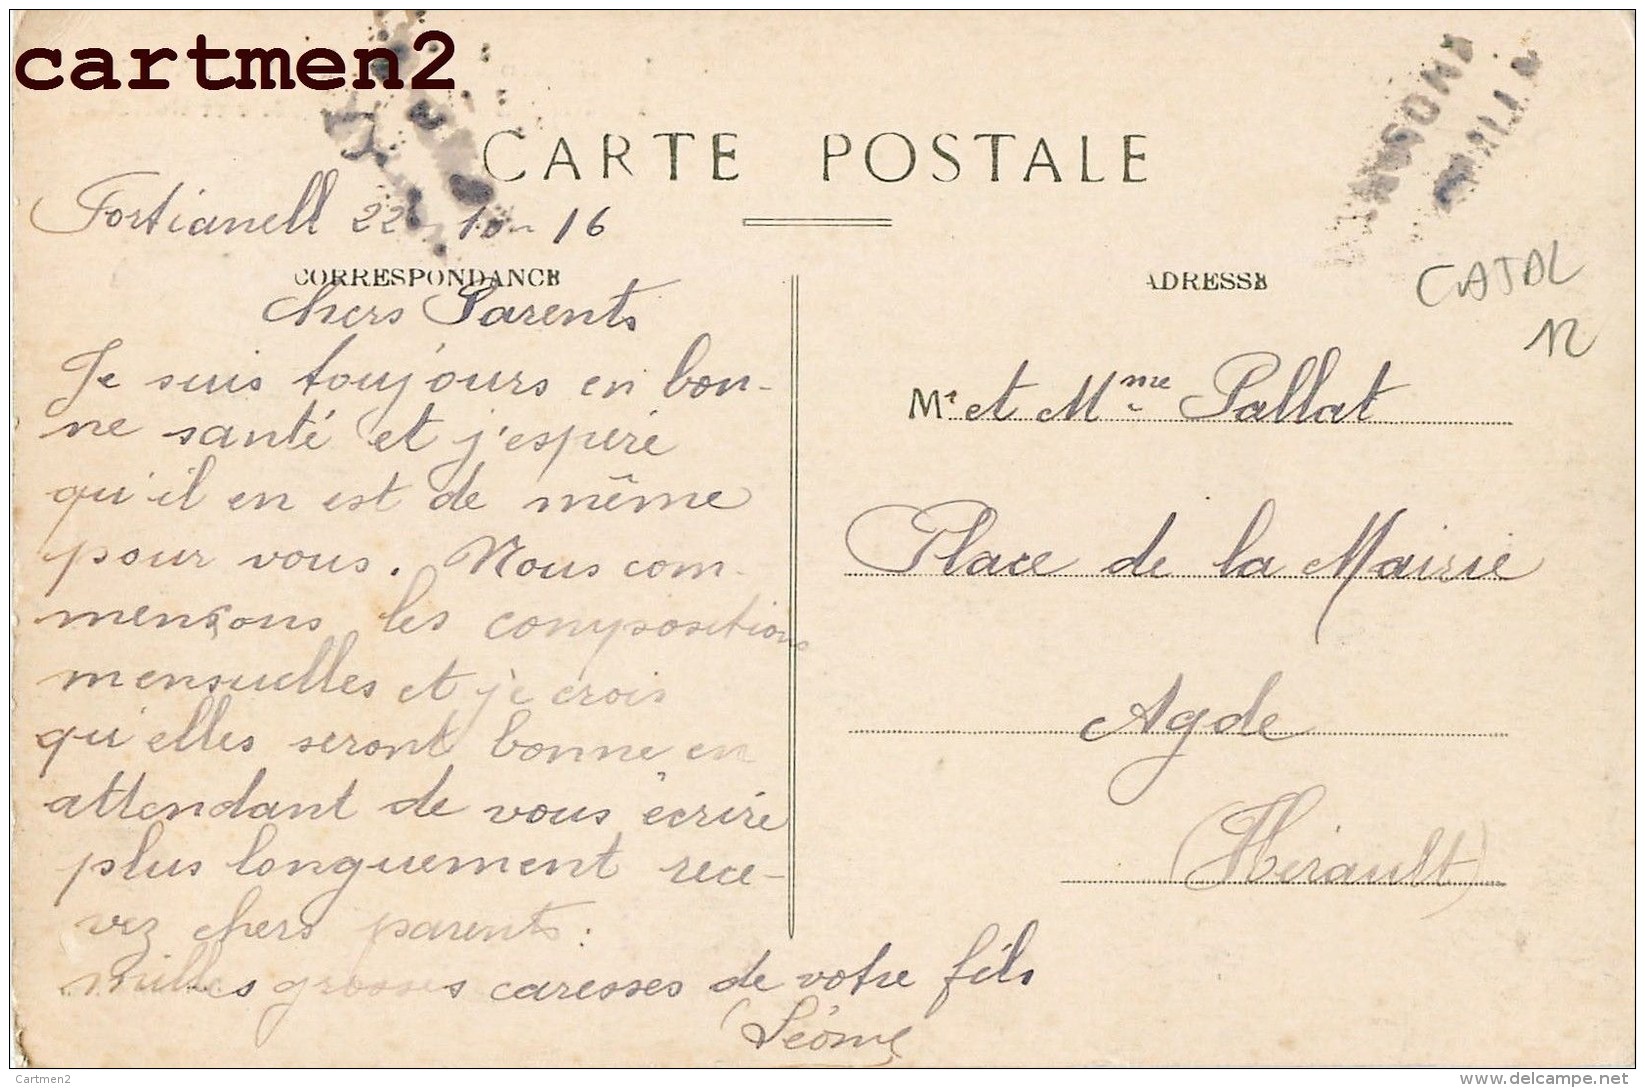 cartmen2
CARTE POSTALE
Fortianell 22-10-16
CORRESPONDANCE
Chers Parents
Je suis toujours en bon-
ne santé et j'espère
qu'il en est de même
pour vous. Nous com-
mençons les compositions
mensuelles et je crois
qu'elles seront bonne en
attendant de vous écrire
plus longuement rece-
vez chers parents:
milles grosses caresses de votre fils
ADRESSE
CATAL
12
Mr et Mme Pallat
Place de la Mairie
Agde
(Hérault)
Cartmen2
www.delcampe.net